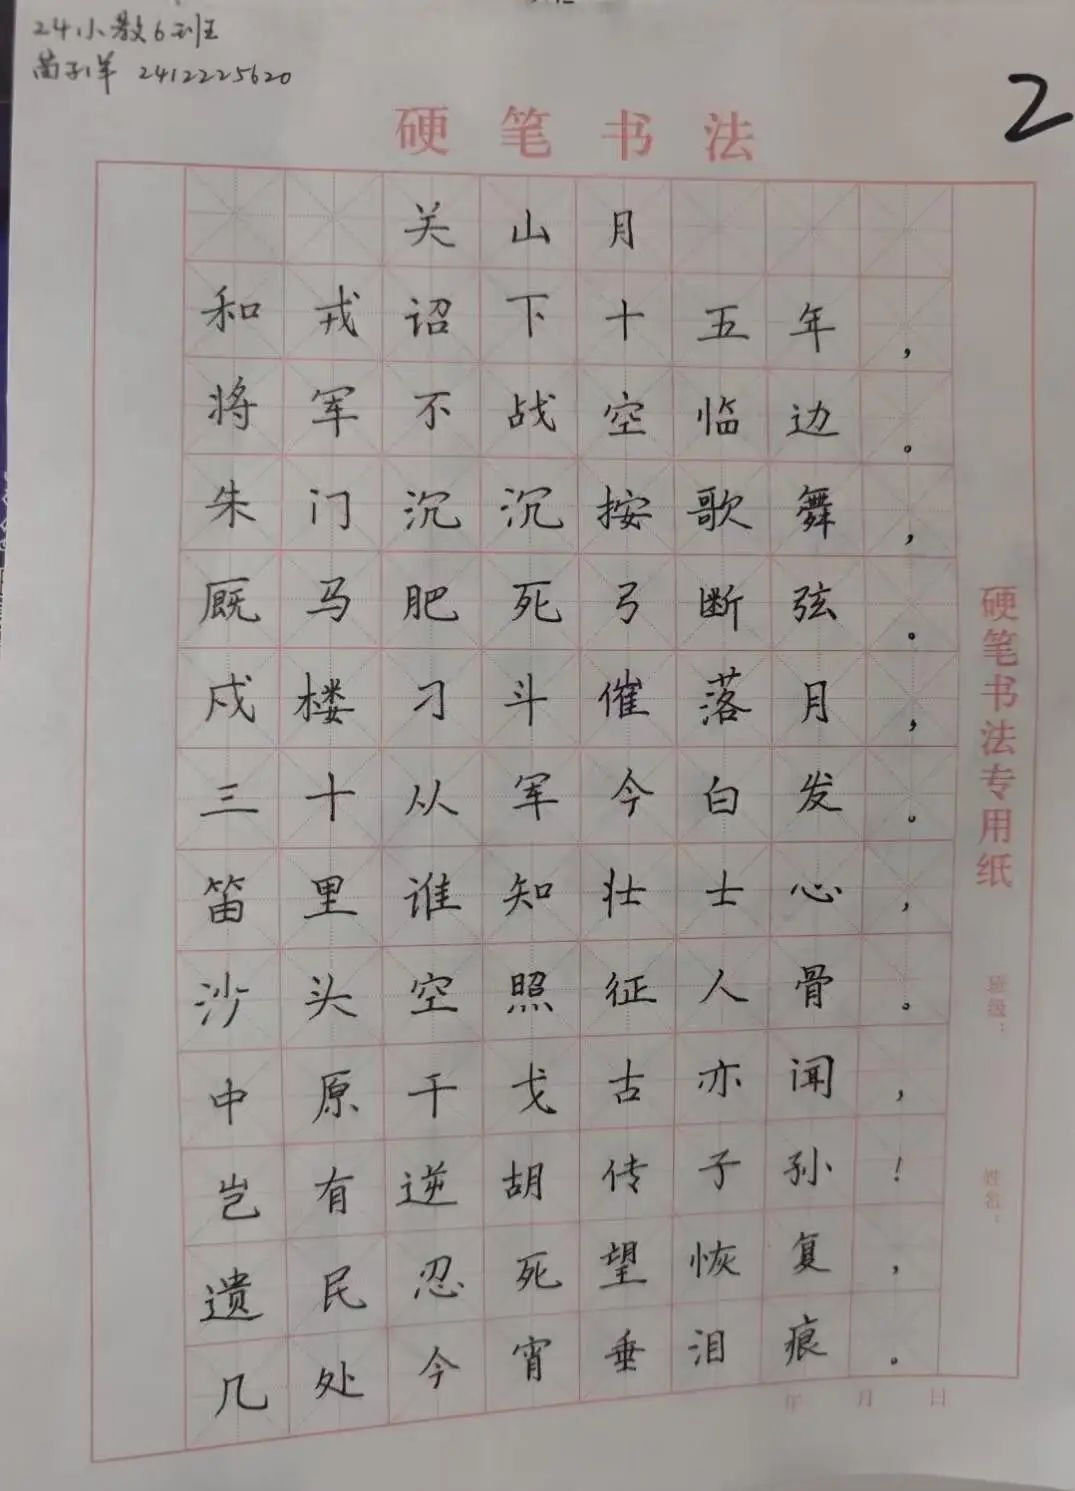 24小教6班
苗子洋 2412225620
2
硬笔书法
关山月
和戎诏下十五年，
将军不战空临边。
朱门沉沉按歌舞，
厩马肥死弓断弦。
戍楼刁斗催落月，
三十从军今白发。
笛里谁知壮士心，
沙头空照征人骨。
中原干戈古亦闻，
岂有逆胡传子孙！
遗民忍死望恢复，
几处今宵垂泪痕。
硬笔书法专用纸
班级：
姓名：
年 月 日